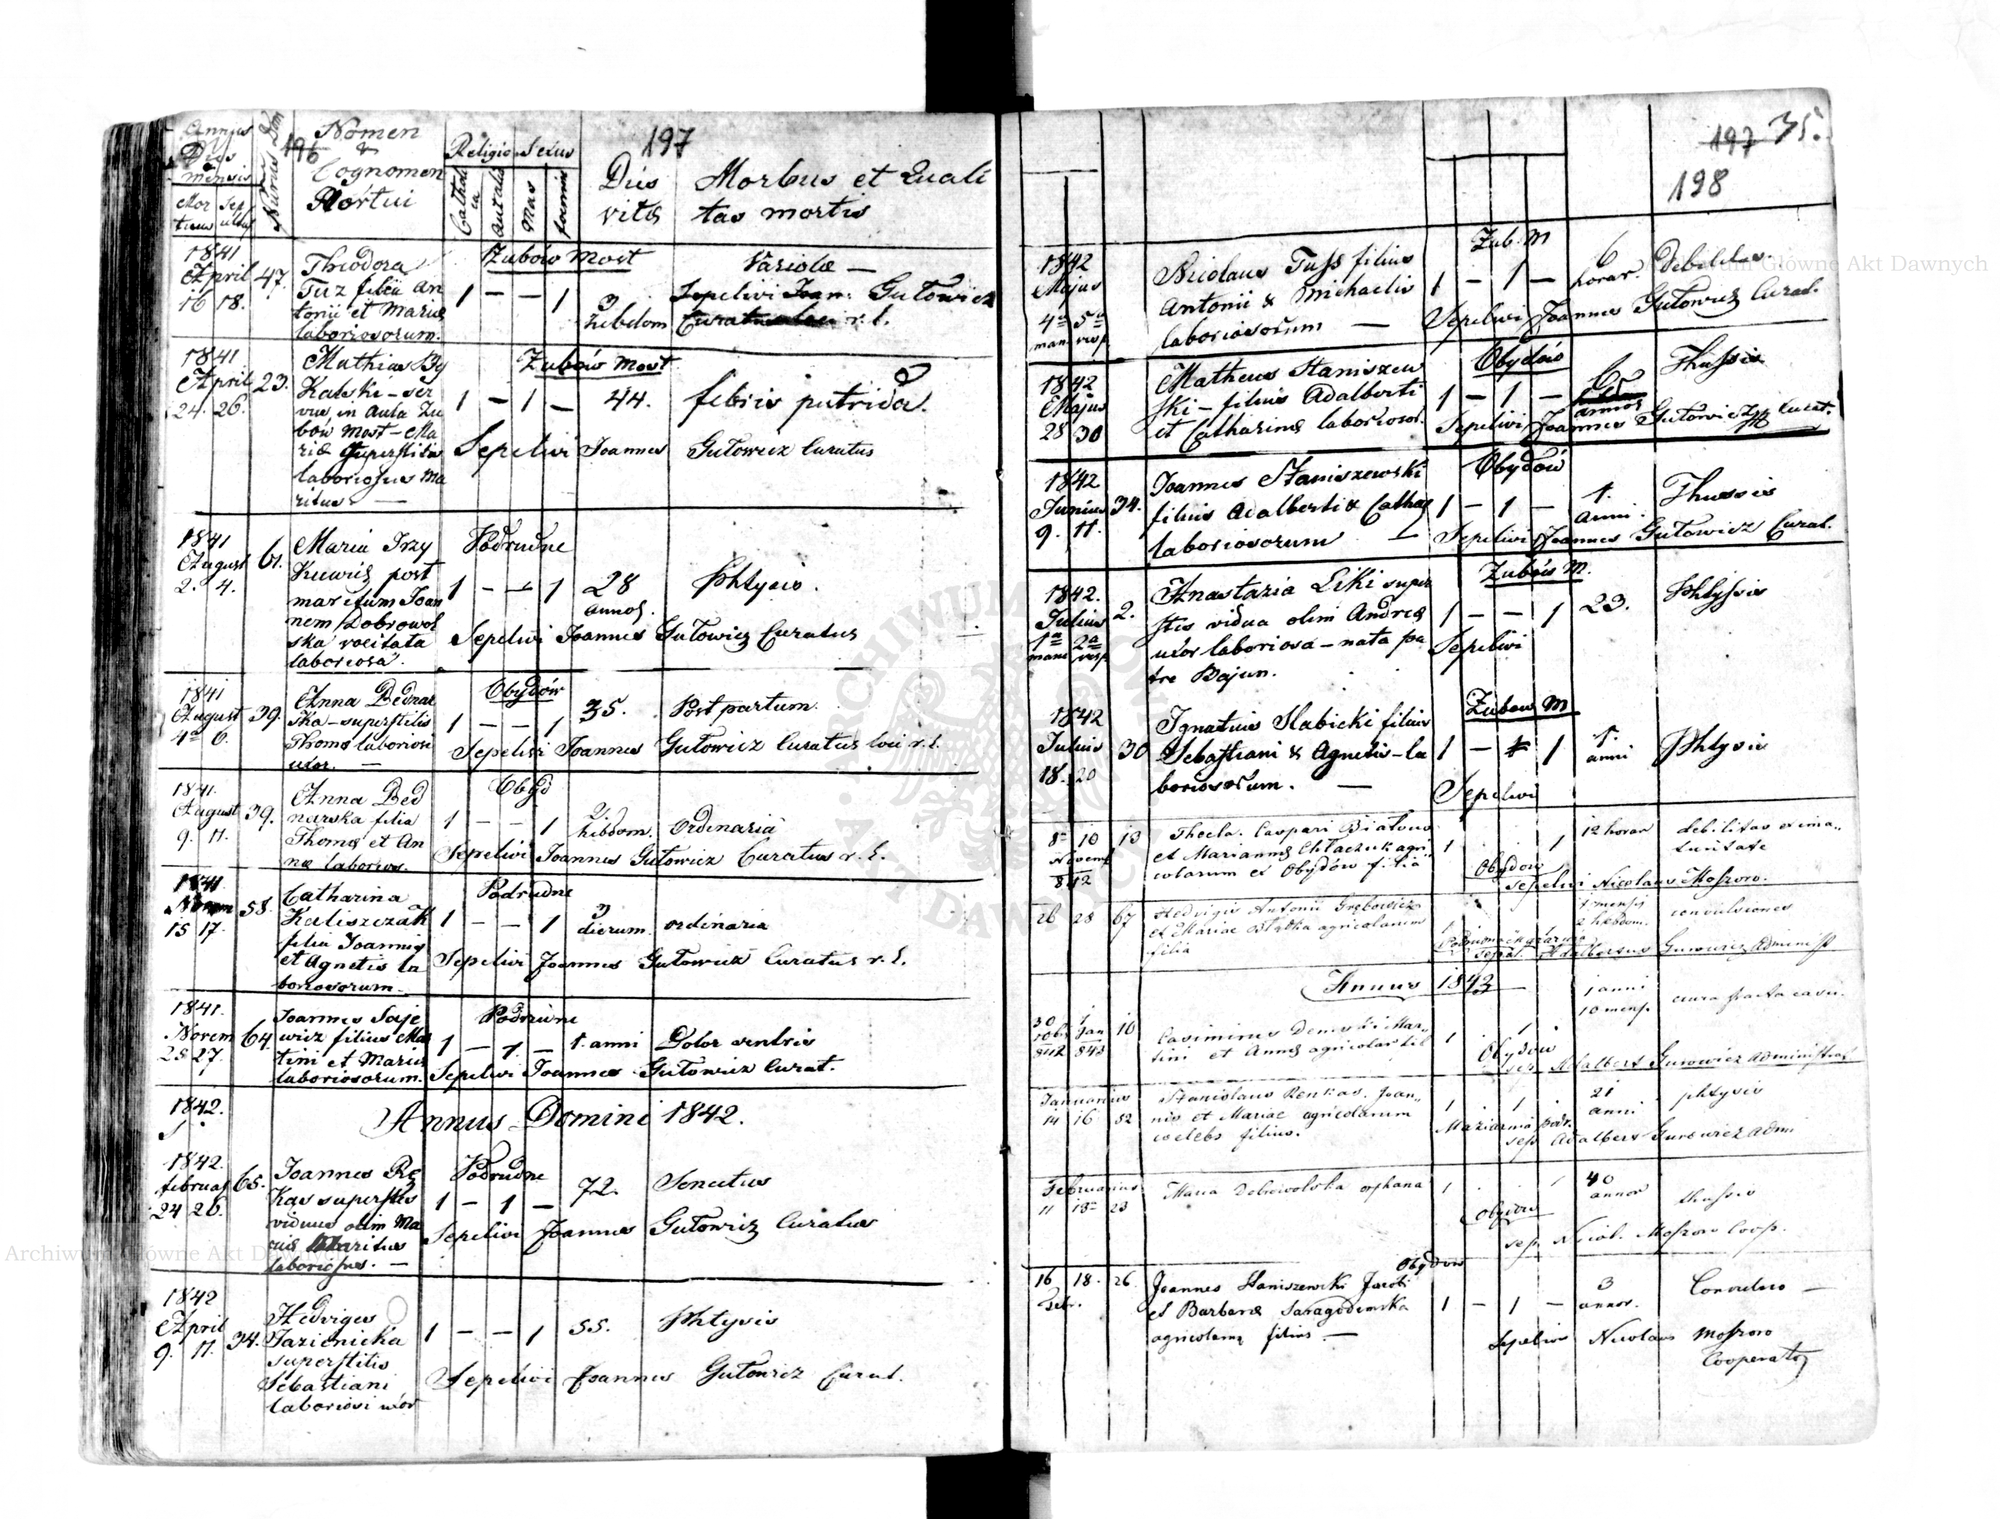 Annus
Dies
mensis
Mor
tuus
Sep
ultus
Numrus Dom
196
Nomen
&
Cognomen
Mortui
Religio
Sexus
Catholi
ca
Mas
197
Dies
vitæ
Morbus et Quali
tas mortis
1841
April 47.
16 18.
Theodora
Tuz filia An
tonii et Mariæ
laboriosorum.
Zubów Most
1 — — 1
3
hebdom
Variolæ —
Sepelivi Joan: Gutowicz
r. l.
1841
April 23.
24. 26.
Mathias By
Kalski – ser
vus in Aula Zu
bów Most – Ma
riæ superstitis
laboriosus Ma
ritus —
Zubów Most
1 — 1 — 44. febris putrida.
Sepelivi Joannes Gutowicz Curatus
1841
August 61.
2. 4.
Maria Trzy
post
maritum Joan
nem Dobrowol
ska vocitata
laboriosa.
Podrudne
1 — — 1 28
annos.
Phtysis.
Sepelivi Joannes Gutowicz Curatus
1841
August 39.
4ª 6.
Anna Bednar
ska – superstitis
Thomæ laboriosi
uxor. —
Obydów
1 — — 1 35. Post partum.
Sepelivi Joannes Gutowicz Curatus loci r. l.
1841.
August 39.
9. 11.
Anna Bed
narska filia
Thomæ et An
næ laborios.
Obyd
1 — — 1 2.
hebdom. ordinaria
Sepelivi Joannes Gutowicz Curatus r. l.
1841.
Novem 58.
15 17.
Catharina
Kaliszczak
filia Joannis
et Agnetis la
boriosorum.
Podrudne
1 — — 1 3
dierum ordinaria
Sepelivi Joannes Gutowicz Curatus r. l.
1841.
Novem 64.
25 27.
Joannes Saje
wicz filius Mar
tini et Mariæ
laboriosorum.
Podrudne
1 — 1. — 1. anni Dolor ventris
Sepelivi Joannes Gutowicz Curat.
1842.
Annus Domini 1842.
1842.
februar 65.
24 26.
Joannes Rę
Kas superstes
viduus olim Ma
riæ Maritus
laboriosus. —
Podrudne
1 — 1 — 72. Senectus
Sepelivi Joannes Gutowicz Curatus
1842
April
9. 11. 34.
Hedviges
Jazienicka
superstitis
Sebastiani
laboriosi uxor
1 — — 1 55. Phtysis
Sepelivi Joannes Gutowicz Curat.
197 35.
198
1842
Majus
4ª 5ª
mane vesp
Nicolaus Tuss filius
Antonii & Michaelis
laboriosorum —
Zub. M
1 — 1 — 6
horar. Debilitas.
Sepelivi Joannes Gutowicz Curat.
1842
Majus
28 30
Matheus Staniszew
ski – filius Adalberti
et Catharinæ laboriosor.
Obydów
1 — 1 — 6
annos
Thussis
Sepelivi Joannes Gutowicz Curat.
1842
Junius 34.
9. 11.
Joannes Staniszewski
filius Adalberti & Cathar
laboriosorum —
Obydów
1 — 1 — 1.
anni.
Thussis
Sepelivi Joannes Gutowicz Curat.
1842.
Julius 2.
1ª 2ª
mane vesp
Anastazia Liki super
stes vidua olim Andreæ
uxor laboriosa – nata pa
tre Bajun.
Zubów M.
1 — — 1 23. Phtysis
Sepelivi
1842
Julius 30
18. 20
Ignatius Slabicki filius
Sebastiani & Agnetis – la
boriosorum. —
Zubow M
1 — 1 1.
anni
Phtysis
Sepelivi
8ª 10 13
Novemb
842
Thecla. Caspari Białous
et Mariannæ Chlaczuk agri
colarum ex Obydów filia
1 1 12 horar debilitas ex ima„
turitate
Obydow
Sepelivi Nicolaus Moszoro.
26 28 67
Hedvigis Antonii Grębowicz
et Mariae agricolarum
filia
1 mensis
2 hebdom.
convulsiones
sepel. Adalbertus Gurowicz Administ
Annus 1843 —
30 1
xobr Jan 10
842 843
Casimirus Demski Mar„
tini et Annæ agricolar fil
1 1
1 anni
10 mens.
Obydow
sep. Adalbert Gurowicz Administrat
Januarius
14 16 52
Stanislaus Renkas, Joan„
nis et Mariae agricolarum
celebs filius.
1 1 21
anni
phtysis
Maziarnia podr.
sep Adalbert Gurowicz Adm.
Februarius
11 13 23
Maria Dobrowolska orphana
1 1 40
annor
thussis
Obydow
sep Nicol. Moszoro Coop.
16 18. 26.
Febr.
Joannes Staniszewski Jacobi
et Barbaræ
agricolarum filius. —
Obydow
1 — 1 — 3
annor.
Convulsio —
Sepelivi Nicolaus Moszoro
Cooperator
Archiwum Główne Akt Dawnych